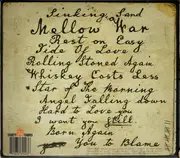 Sinking Sand
Mellow War
Rest on Easy
Tide Of Love
Rolling Stoned Again
Whiskey Costs Less
Star of The Morning
Angel Falling Down
Hard to Love
I want you Still
Born Again
You to Blame